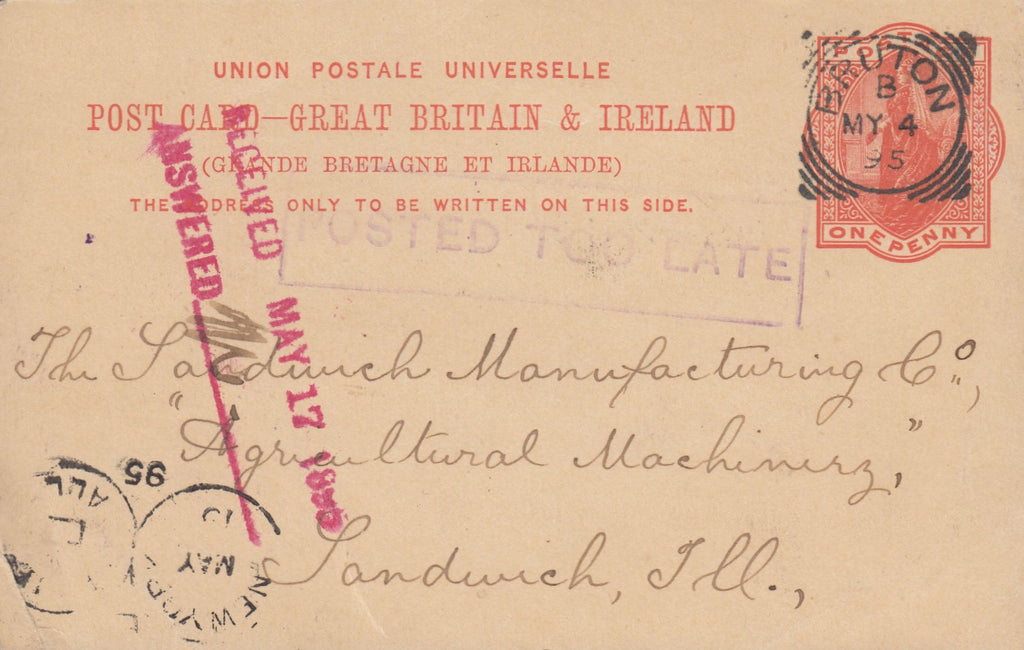 UNION POSTALE UNIVERSELLE
POST CARD—GREAT BRITAIN & IRELAND
(GRANDE BRETAGNE ET IRLANDE)
THE ADDRESS ONLY TO BE WRITTEN ON THIS SIDE.
POSTAGE
ONE PENNY
BRUTON
B
MY 4
95
POSTED TOO LATE
RECEIVED MAY 17 1895
ANSWERED
The Sandwich Manufacturing Co.,
"Agricultural Machinery,"
Sandwich, Ill.,
NEW YORK
MAY
95
ALL